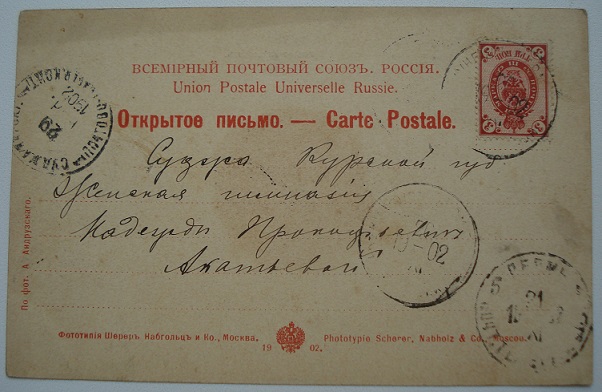 ВСЕМІРНЫЙ ПОЧТОВЫЙ СОЮЗЪ. РОССІЯ.
Union Postale Universelle Russie.
Открытое письмо. — Carte Postale.
Суджа Курской губ
Женская гимназія
Надежди Прокофьевнъ
Акатьевой
По фот. А. Андрузскаго.
1902
29
10-02
ПЕРМЬ
21
Фототипія Шереръ, Набгольцъ и Ко., Москва.
Phototypie Scherer, Nabholz & Co. Moscou.
19 02.